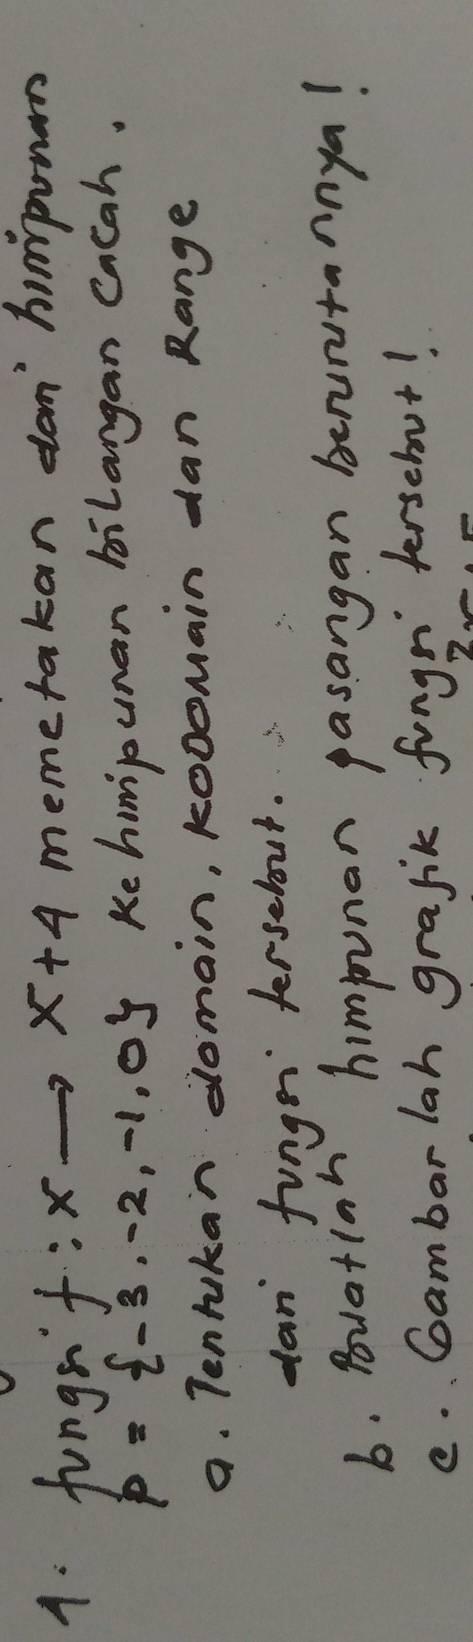 1. fungsi f : x → x + 4 memetakan dari himpunan
p = {-3, -2, -1, 0} ke himpunan bilangan cacah.
a. Tentukan domain, kodomain dan Range
dari fungsi tersebut.
b. Buatlah himpunan pasangan berurutannya!
c. Gambarlah grafik fungsi tersebut!